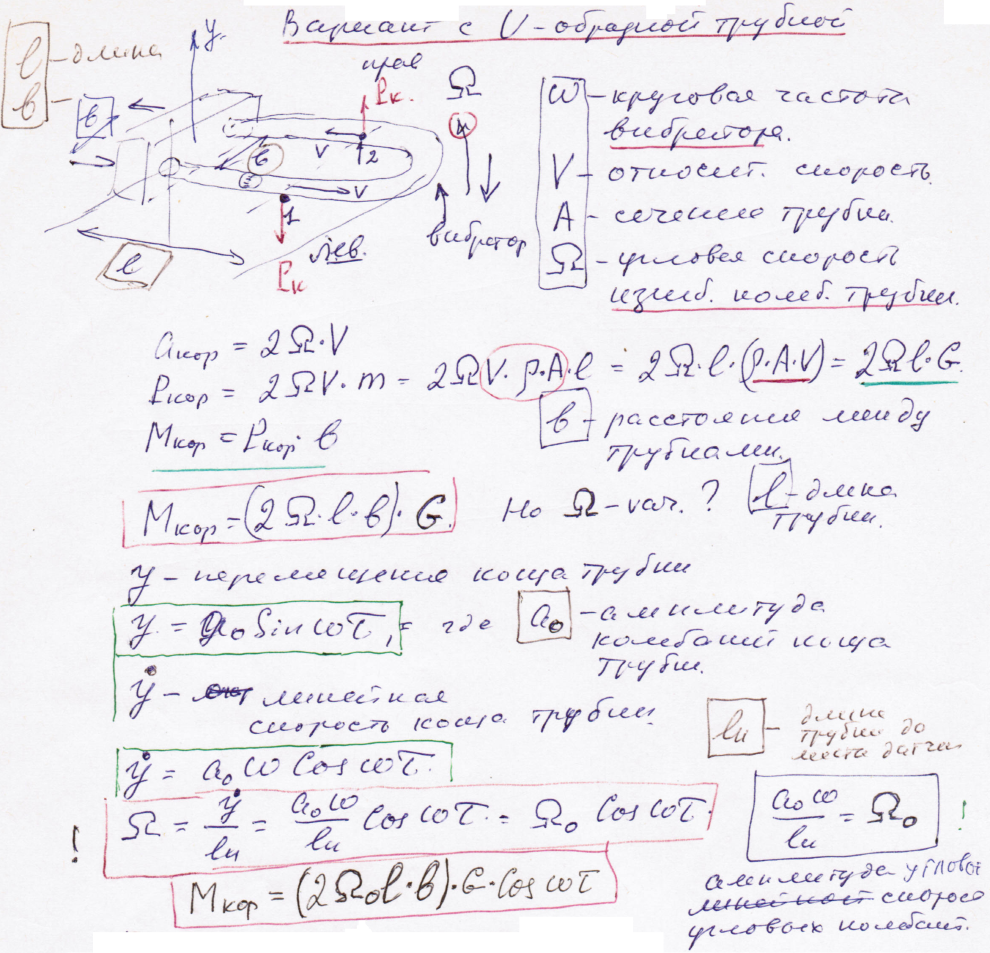 Вариант с U-образной трубкой
l - длина
в -
y
прав
Pк.
Ω
в
V
2
G
V
1
лев.
Pк
вибратор
l
ω - круговая частота
вибратора.
V - относит. скорость.
A - сечение трубки.
Ω - угловая скорость
изгиб. колеб. трубки.
aкор = 2Ω·V
Pкор = 2ΩV·m = 2ΩV·ρ·A·l = 2Ω·l·(ρ·A·V) = 2Ωl·G.
Mкор = Pкор·в
в - расстояние между
трубками.
Mкор = (2Ω·l·в)·G.
Но Ω - var. ?
l - длина
трубки.
y - перемещение конца трубки
y = a₀ Sin ωτ, где
a₀ - амплитуда
колебаний конца
трубки.
ẏ - линейная
скорость конца трубки.
lи - длина
трубки до
места датчи
ẏ = a₀ ω Cos ωτ.
! Ω = ẏ/lи = a₀ω/lи Cos ωτ = Ω₀ Cos ωτ.
a₀ω/lи = Ω₀ !
амплитуда угловой
линейной скорос
угловых колебаний.
Mкор = (2Ω₀l·в)·G·Cos ωτ